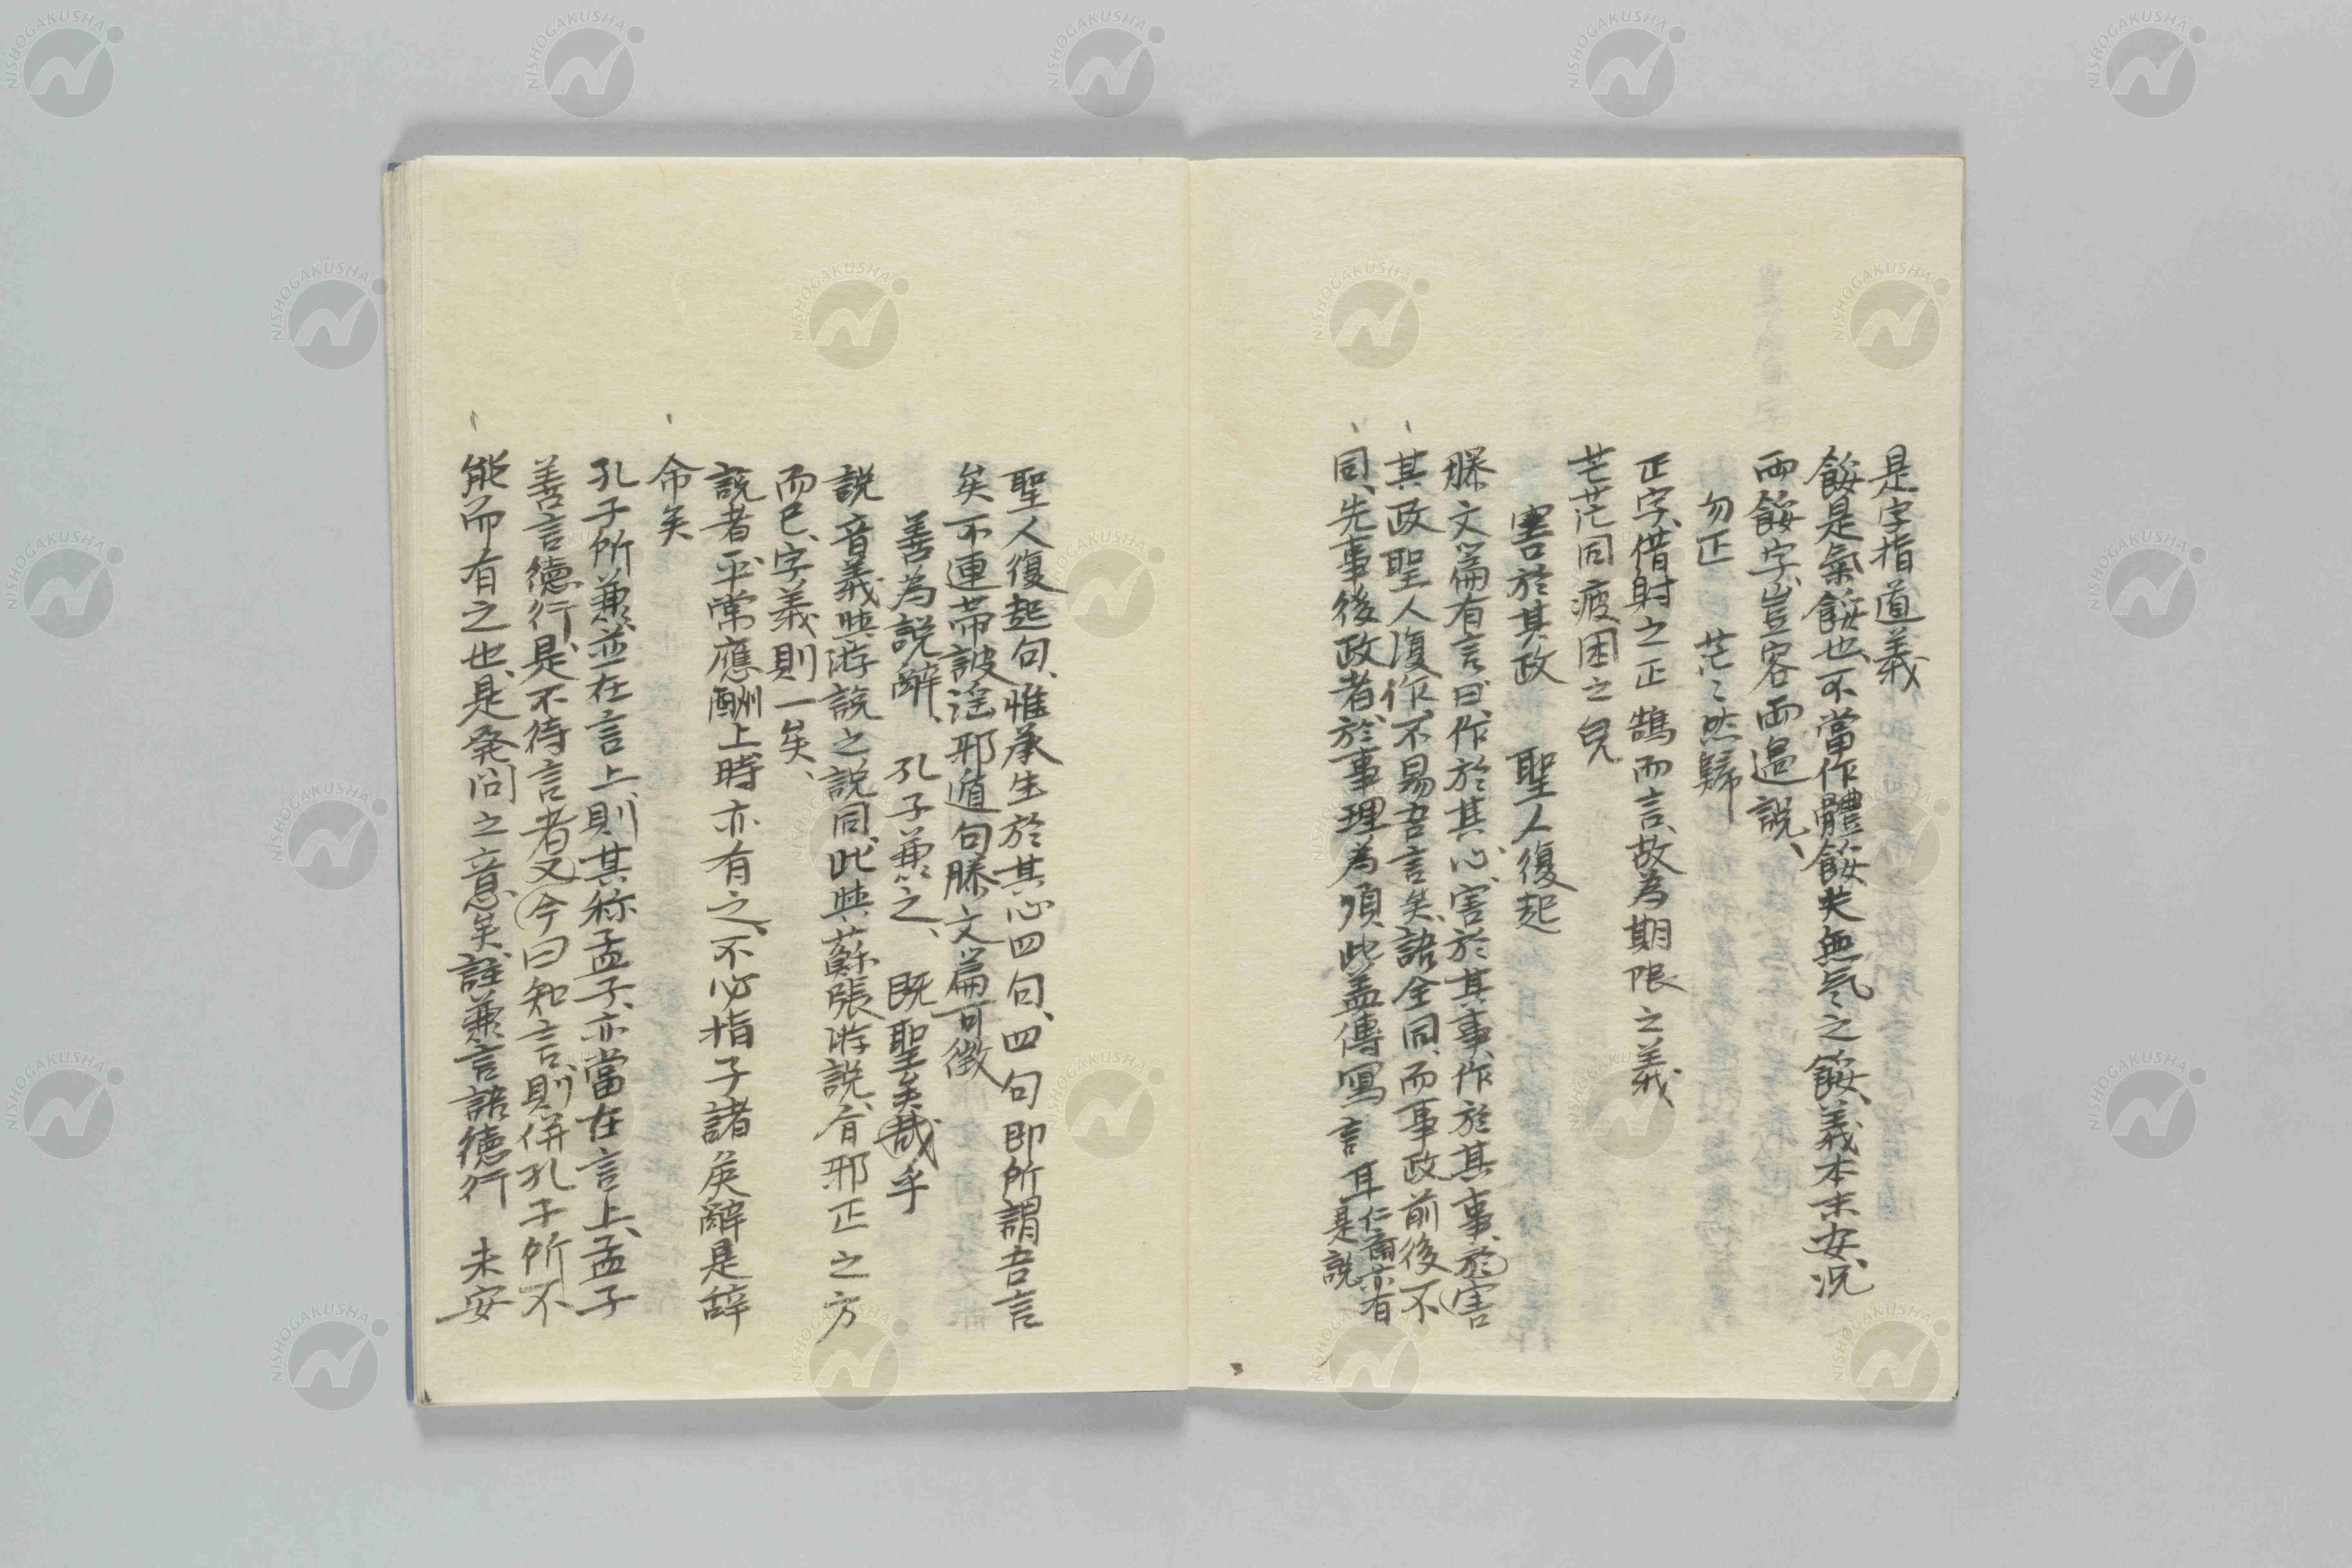 是字指道義
餒是氣餒也、不當作體餒失無気之餒、義本未安、况
両餒字、豈容両過説、
勿正　茫〻然歸
正字、借射之正鵠而言、故為期限之義
芒芒同疲困之皃
害於其政　聖人復起
滕文篇有言曰、作於其心、害於其事、作於其事、於害
其政聖人復作、不易吾言矣、語全同、而事政前後不
同、先事後政者、於事理為順、此盖傳寫言耳仁斎亦有是説
聖人復起句、惟承生於其心四句、四句即所謂吾言
矣不連帯詖淫邪遁句、滕文篇可徴
善為説辭、孔子兼之、既聖矣哉乎
説音義與游説之説同、此與蘇張游説、有邪正之方
而已、字義則一矣、
説者平常應酬上時亦有之、不必指子諸侯辭是辞
命矣
孔子所兼、並在言上、則其称孟子、亦當在言上、孟子
善言徳行、是不待言者、又今曰知言、則併孔子所不
能而有之也、是発問之意矣、註兼言語徳行　未安